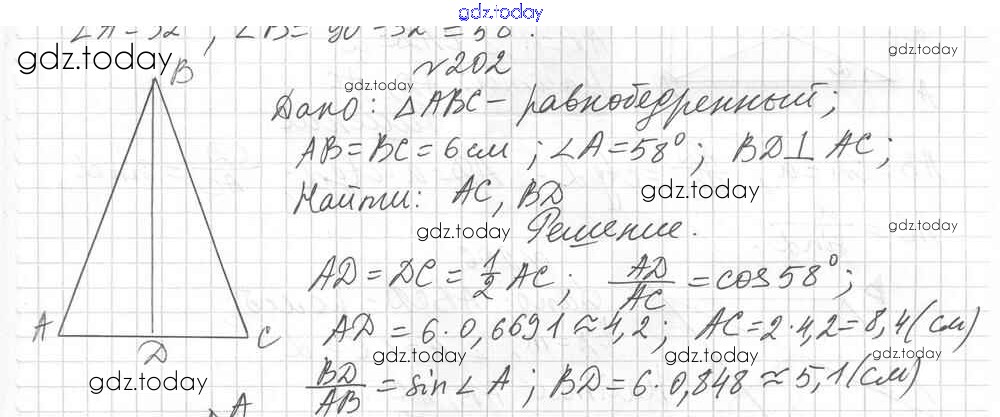 gdz.today
∠A = 32°, ∠B = 90 - 32 = 58°.
gdz.today
gdz.today
№202
B
gdz.today
Дано: △ABC - равнобедренный;
AB = BC = 6 см; ∠A = 58°; BD ⊥ AC;
gdz.today
Найти: AC, BD
gdz.today
gdz.today
Решение.
AD = DC = 1/2 AC; AD/AC = cos 58°;
A
C
D
AD = 6 · 0,6691 ≈ 4,2; AC = 2 · 4,2 = 8,4 (см)
gdz.today
gdz.today
gdz.today
gdz.today
BD/AB = sin ∠A; BD = 6 · 0,848 ≈ 5,1 (см)
A